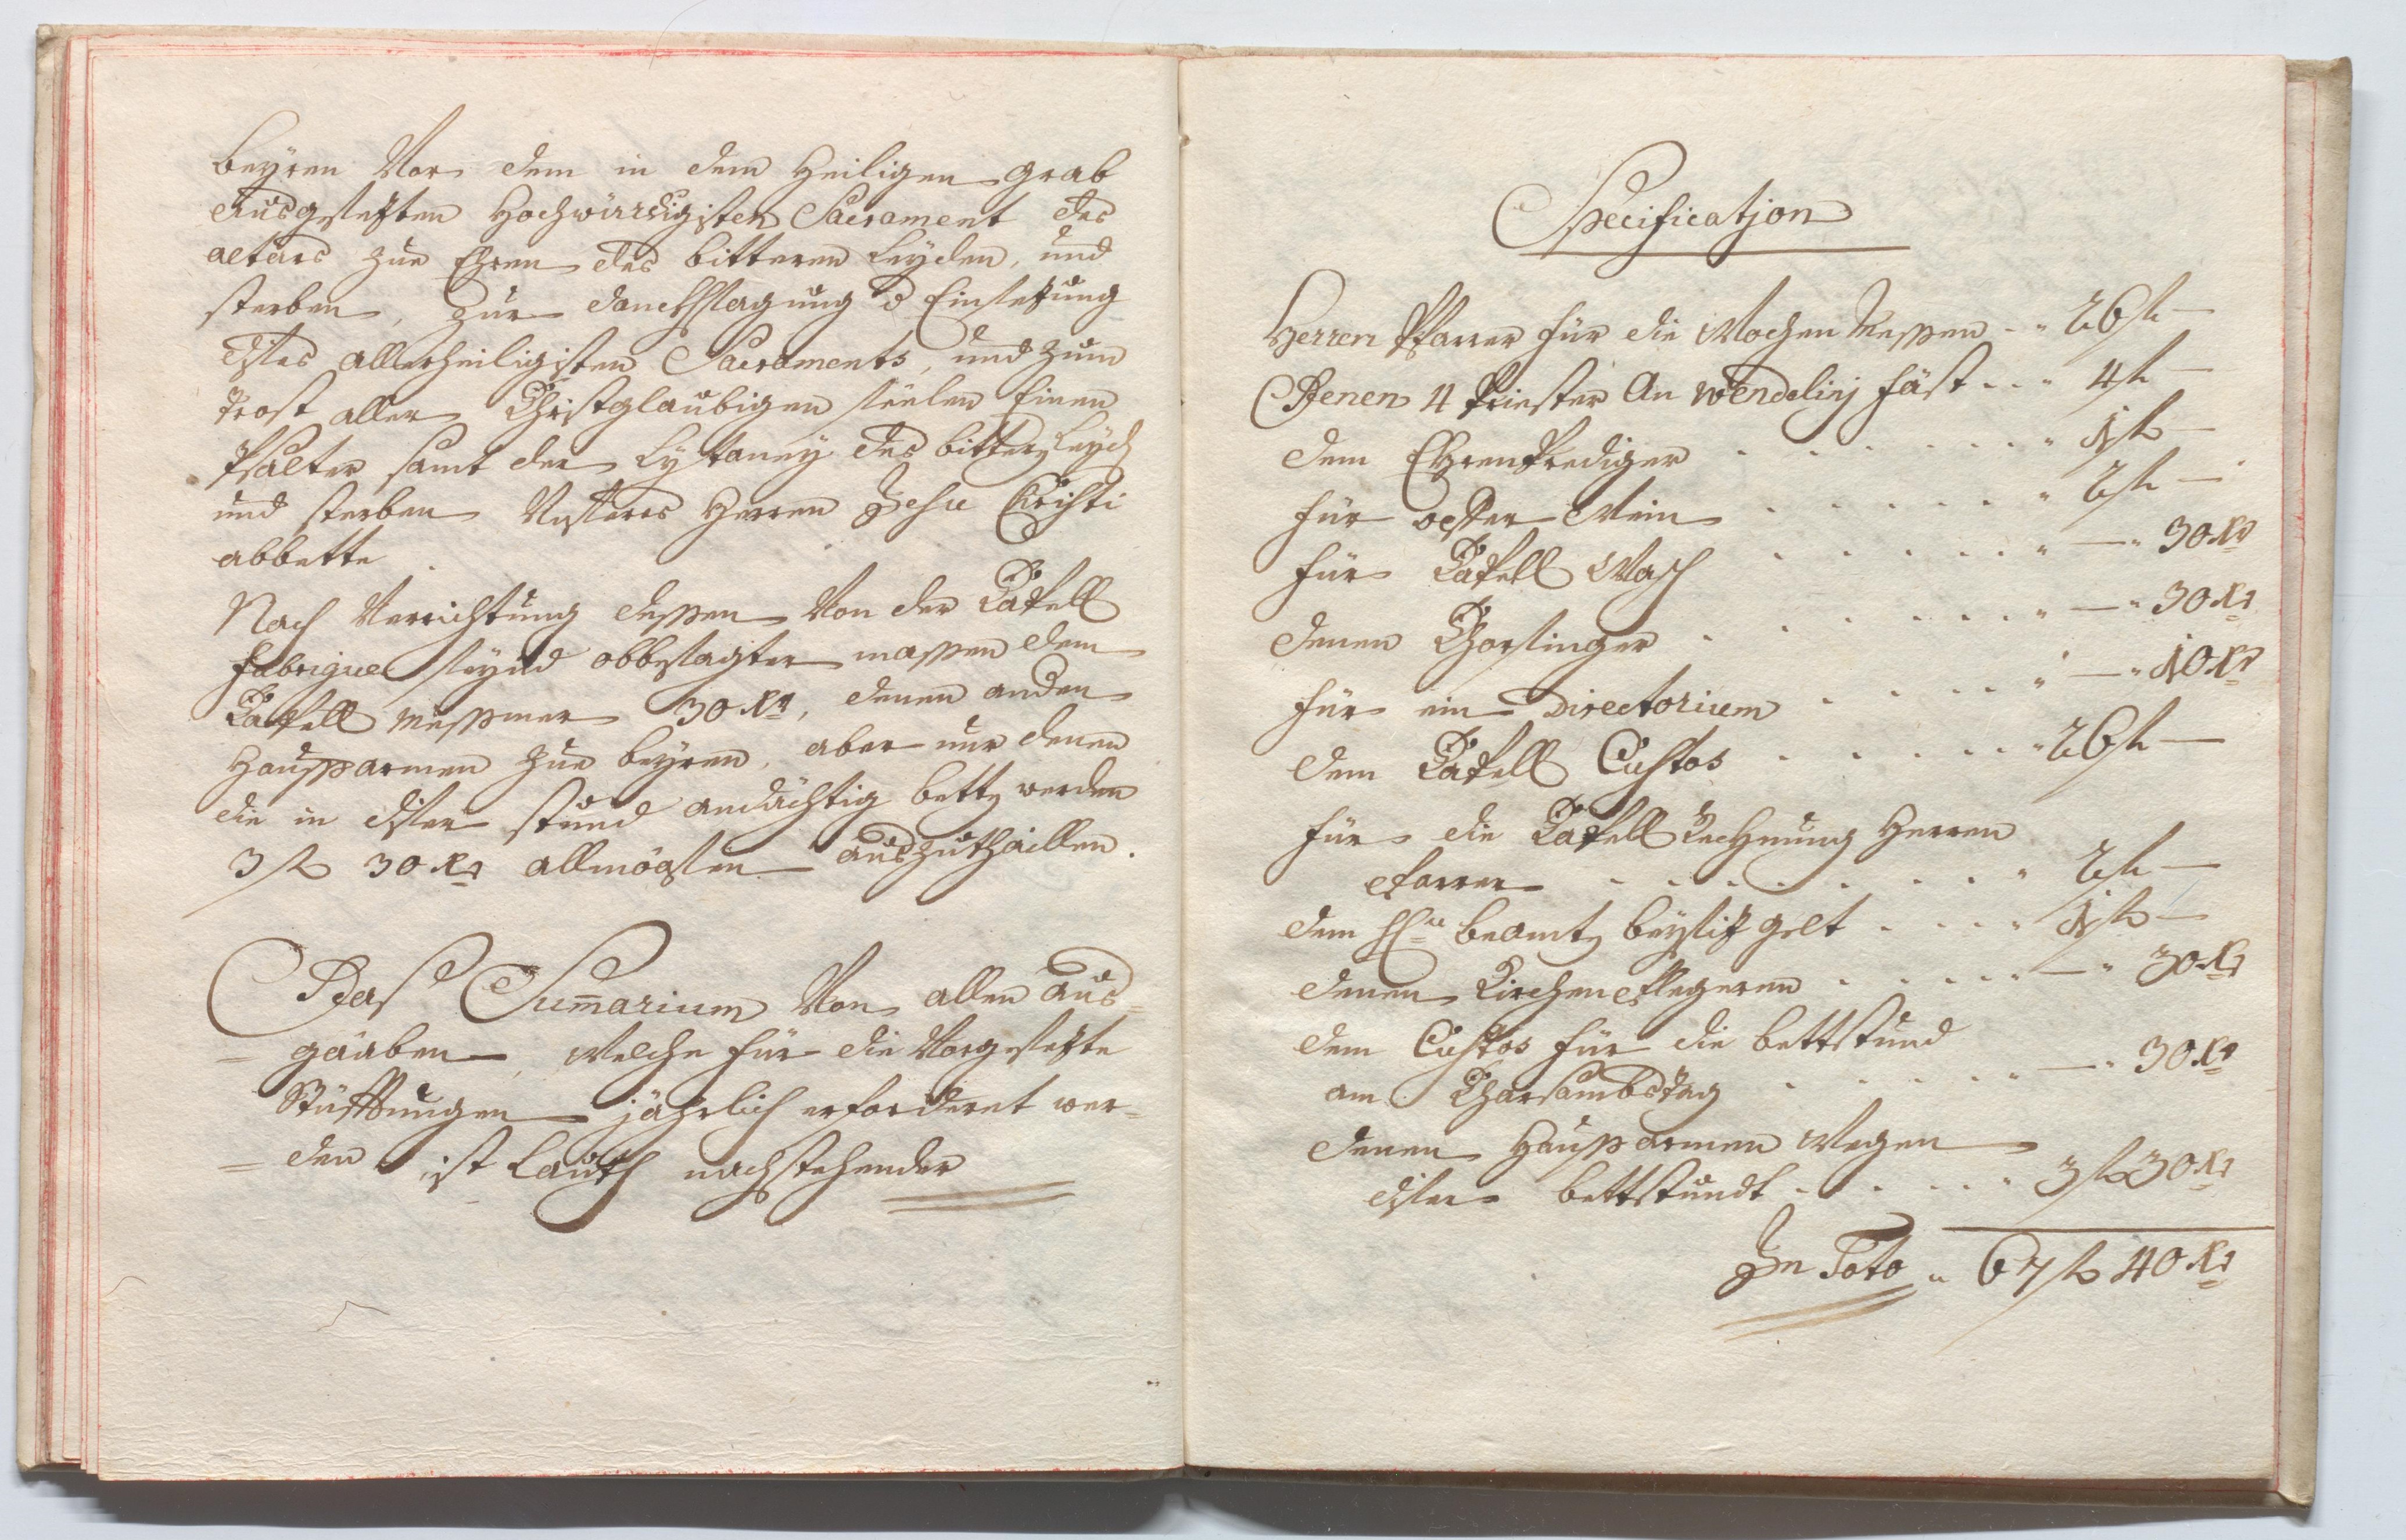 beyren Vor dem in dem Heiligen grab
Ausgesetzten Hochwürrdigisten Sacrament des
altars zue Ehren des bitteren Leyden, und
sterben, Zur dancksagung d Einsetzung
dises allerheiligisten Sacraments, und zum
trost aller Christglaubigen seelen Einen
Psalter samt der Lytaney des bittern Leydens
und sterben Unseres Herren Jesu Christi
abbette
Nach Verrichtung dessen Von der Capell
fabrique seynd obbesagter massen dem
Capell Messmer 30 Kr, denen andern
Haussarmen zue beyren, aber nur denen
die in diser stund andächtig betten werden
3 fl 30 Kr auszuthaillen.
Das Sumarium Von allen aus=
= gaaben, Welche für die Vorgesetzte
Stüfftungen jährlich erforderet wer=
= den ist Lauth nachstehender
Specification
Herren Pfarrer für die Wochen Messen - " 26 fl —
Denen 4 Priester An Wendelinj fäst . . " 4 fl —
dem EhrenPrediger . . . . . . . " 1 fl —
für opfer Wein . . . . . . " 2 fl —
für Capell Wax . . . . . " — " 30 Kr
denen Chorsinger . . . . . . " — " 30 Kr
für ein Directorium . . . . . " — " 10 Kr
dem Capell Custos . . . . . " 26 fl —
für die Capell Rechnung Herren
Pfarrer . . . . . . . . " 2 fl —
dem H beamten beysitz gelt . . . . " 1 fl —
denen Kirchenpflegeren . . . . . — " 30 Kr
dem Custos für die bettstund
am Charsambstag . . . . . — " 30 Kr
denen Haussarmen Wegen
diser bettstundt . . . . . " 3 fl 30 Kr
In Toto " 67 fl 40 Kr